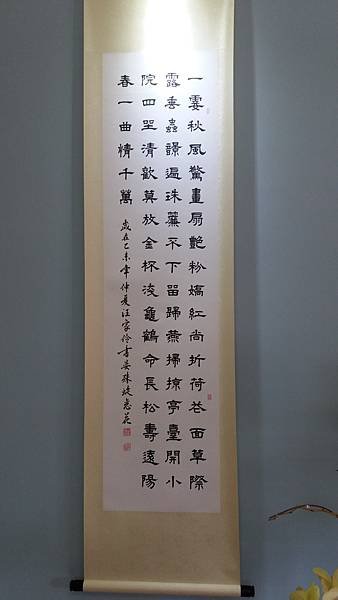 一霎秋風驚畫扇艷粉嬌紅尚折荷花面草際
露垂蟲響遍珠簾不下留歸燕掃掠亭臺開小
院四坐清歡莫放金杯淺龜鶴命長松壽遠陽
春一曲情千萬
歲在乙未年仲夏汪家伶書晏殊蝶戀花